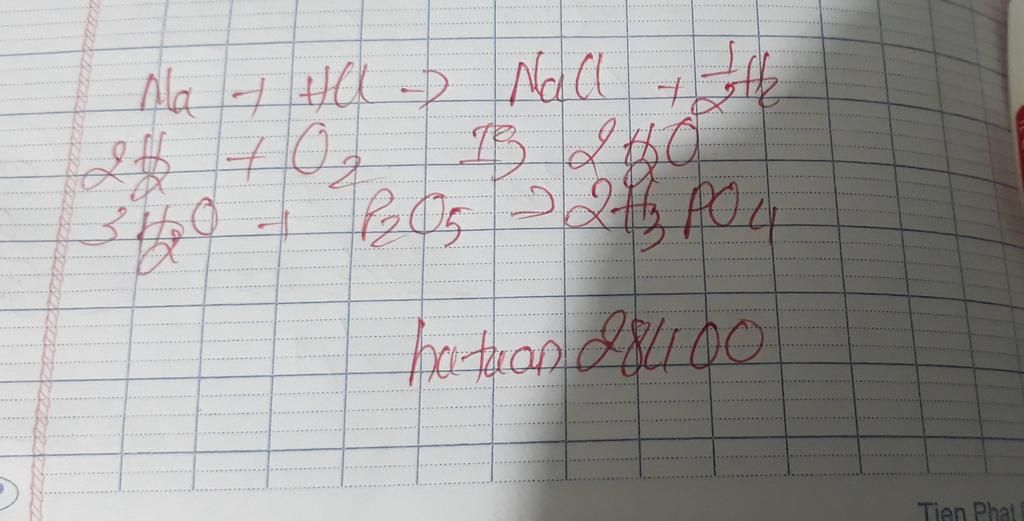 Na + HCl → NaCl + 1/2 H2
2H2 + O2 → 2H2O
3H2O + P2O5 → 2H3PO4
hatuan 28400
Tien Phat